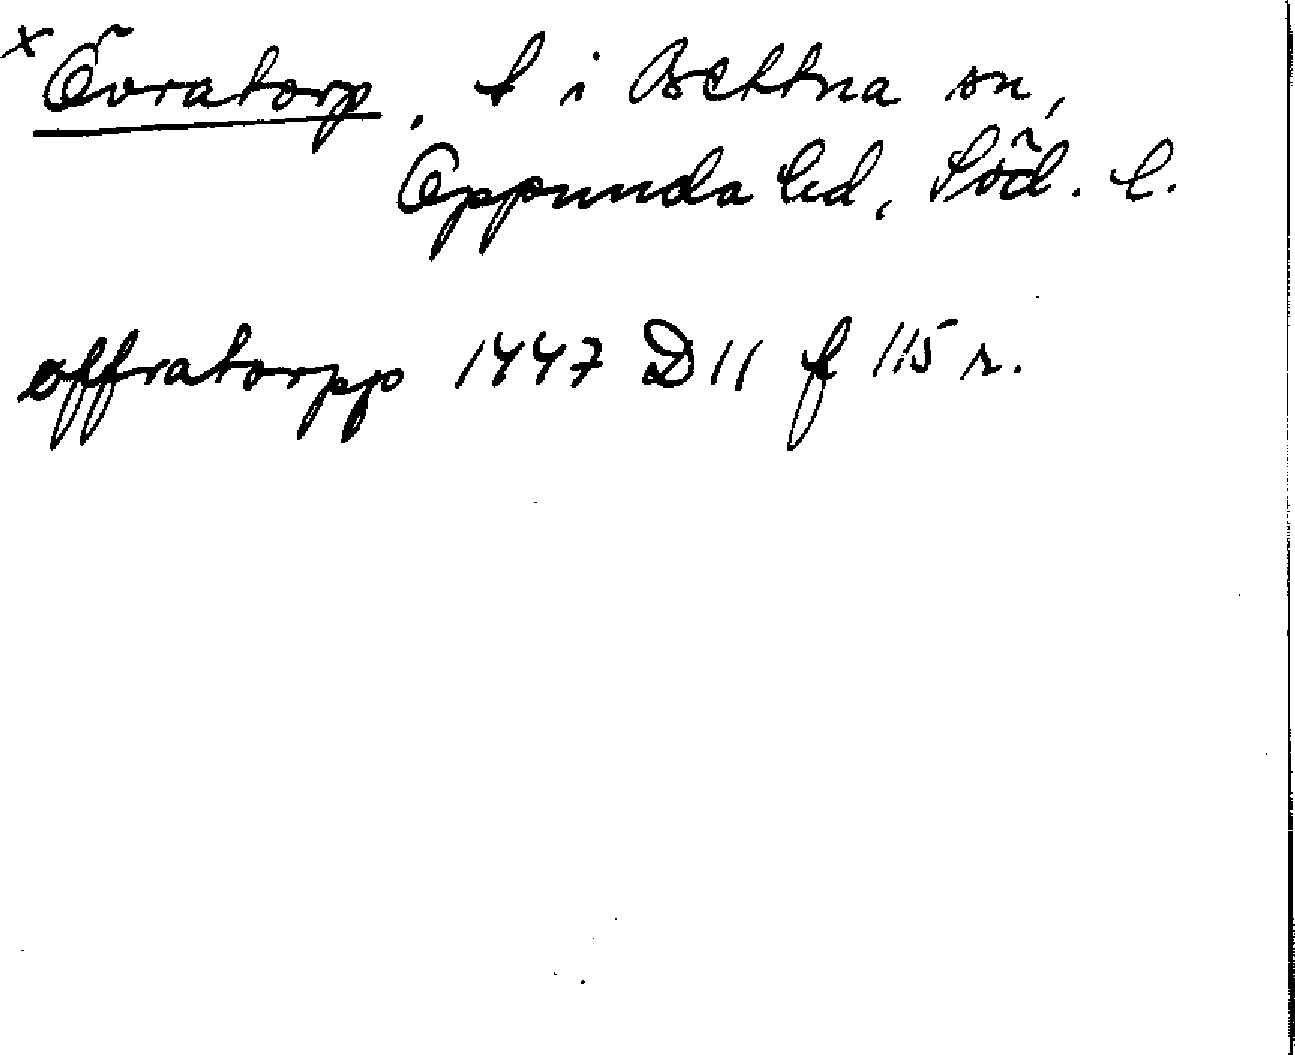 x Övratorp, t i Bettna sn,
Oppunda hd, Söd. l.
offratorpp 1447 D 11 f 115 r.